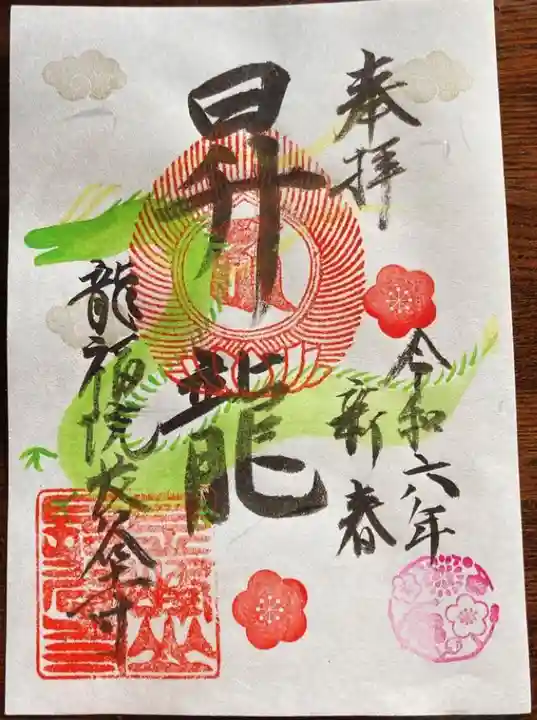 奉拝
令和六年
新春
昇龍
龍福院長谷寺